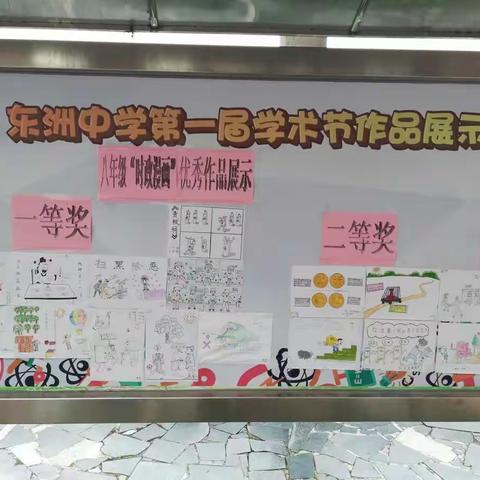 东洲中学第一届学术节作品展示
八年级“时政漫画”优秀作品展示
一等奖
二等奖
扫黑除恶